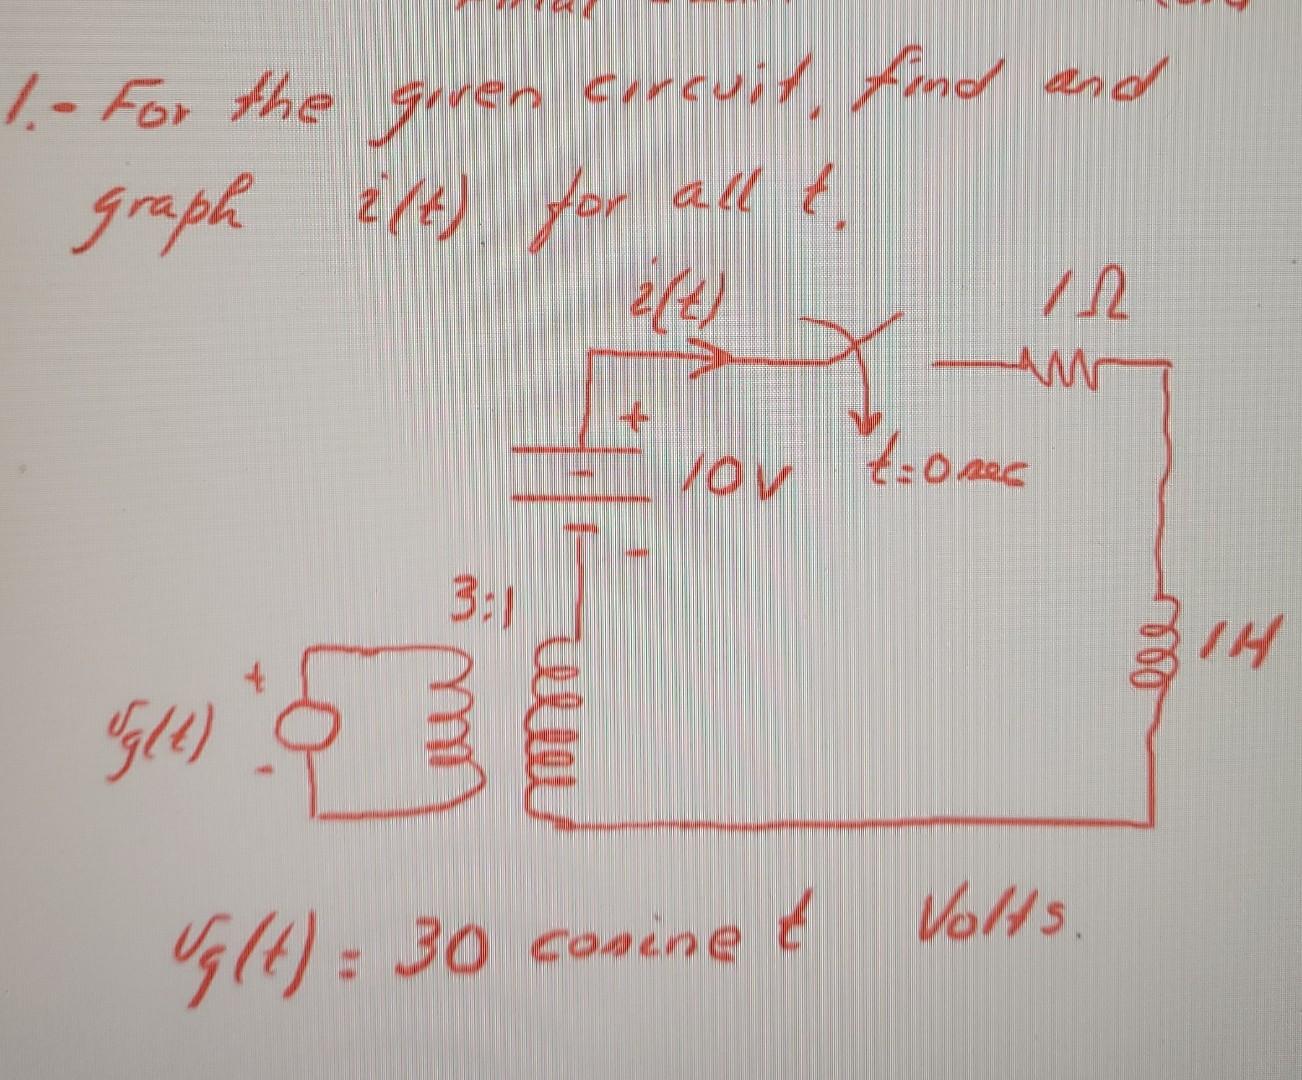 1.- For the given circuit, find and
graph i(t) for all t.
i(t)
1Ω
+
10V
t=0 sec
-
3:1
+
1H
vg(t)
-
vg(t) = 30 cosine t Volts.